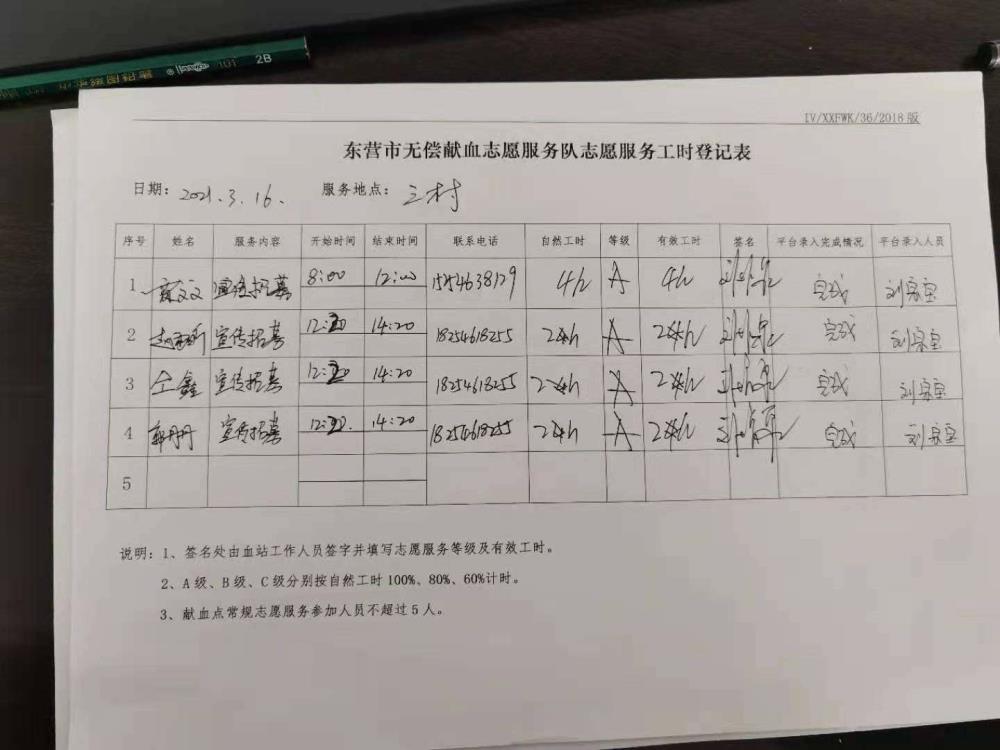 101 2B
IV/XXFWK/36/2018版
东营市无偿献血志愿服务队志愿服务工时登记表
日期: 2021.3.16. 服务地点: 三村
序号 姓名 服务内容 开始时间 结束时间 联系电话 自然工时 等级 有效工时 签名 平台录入完成情况 平台录入人员
1 宣传招募 8:00 12:00 15254638129 4h A 4h 完成 刘家宝
2 宣传招募 14:20 18254618255 A 完成 刘家宝
3 仝鑫 宣传招募 14:20 18254618255 A 完成 刘家宝
4 郭丹丹 宣传招募 14:20 18254618255 A 完成 刘家宝
5
说明: 1、签名处由血站工作人员签字并填写志愿服务等级及有效工时。
2、A级、B级、C级分别按自然工时100%、80%、60%计时。
3、献血点常规志愿服务参加人员不超过5人。